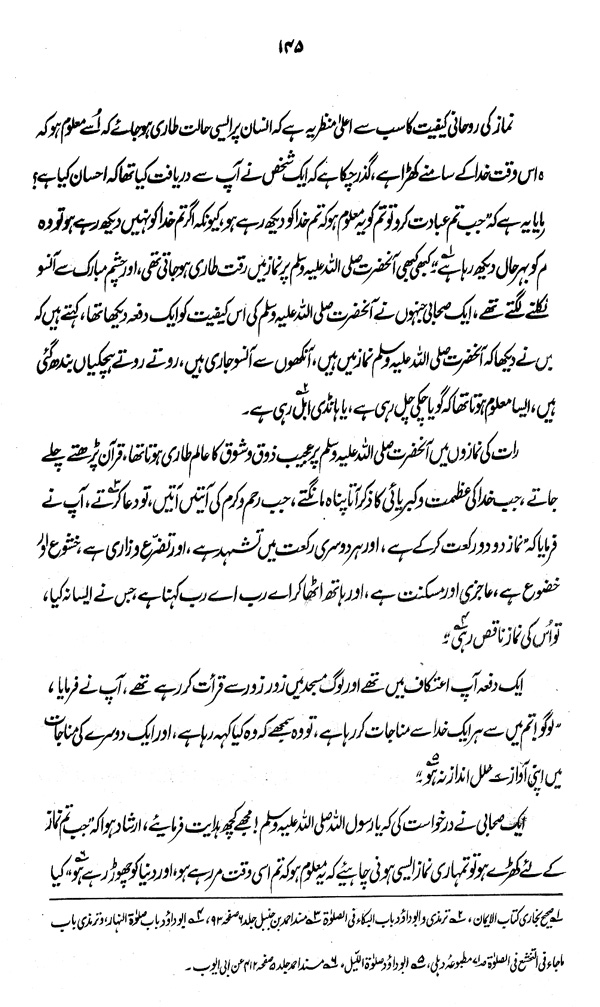 ۱۴۵
نماز کی روحانی کیفیت کا سب سے اعلیٰ منظر یہ ہے کہ انسان پر ایسی حالت طاری ہو جائے کہ اُسے معلوم ہو کہ
ہ اس وقت خدا کے سامنے کھڑا ہے، گذر چکا ہے کہ ایک شخص نے آپ سے دریافت کیا تھا کہ احسان کیا ہے؟
رمایا یہ ہے کہ "جب تم عبادت کرو تو تم کو یہ معلوم ہو کہ تم خدا کو دیکھ رہے ہو، کیونکہ اگر تم خدا کو نہیں دیکھ رہے ہو تو وہ
م کو بہر حال دیکھ رہا ہے"۱؎ کبھی کبھی آنحضرت صلی اللہ علیہ وسلم پر نماز میں رقت طاری ہو جاتی تھی، اور چشم مبارک سے آنسو
نکلنے لگتے تھے، ایک صحابی جنہوں نے آنحضرت صلی اللہ علیہ وسلم کی اس کیفیت کو ایک دفعہ دیکھا تھا، کہتے ہیں کہ
یں نے دیکھا کہ آنحضرت صلی اللہ علیہ وسلم نماز میں ہیں، آنکھوں سے آنسو جاری ہیں، روتے روتے ہچکیاں بندھ گئی
ہیں، ایسا معلوم ہوتا تھا کہ گویا چکی چل رہی ہے، یا ہانڈی ابل رہی ہے۲؎۔
رات کی نمازوں میں آنحضرت صلی اللہ علیہ وسلم پر عجیب ذوق و شوق کا عالم طاری ہوتا تھا، قرآن پڑھتے چلے
جاتے، جب خدا کی عظمت و کبریائی کا ذکر آتا پناہ مانگتے، جب رحم و کرم کی آیتیں آتیں، تو دعا کرتے۳؎، آپ نے
فرمایا کہ "نماز دو دو رکعت کر کے ہے، اور ہر دوسری رکعت میں تشہد ہے، اور تضرّع و زاری ہے، خشوع اور
خضوع ہے، عاجزی اور مسکنت ہے، اور ہاتھ اٹھا کر اے رب اے رب کہنا ہے، جس نے ایسا نہ کیا،
تو اُس کی نماز ناقص رہی۴؎"
ایک دفعہ آپ اعتکاف میں تھے اور لوگ مسجد میں زور زور سے قرأت کر رہے تھے، آپ نے فرمایا،
"لوگو! تم میں سے ہر ایک خدا سے مناجات کر رہا ہے، تو وہ سمجھے کہ وہ کیا کہہ رہا ہے، اور ایک دوسرے کی مناجات
میں اپنی آواز سے خلل انداز نہ ہو۵؎"
ایک صحابی نے درخواست کی کہ یا رسول اللہ صلی اللہ علیہ وسلم! مجھے کچھ ہدایت فرمائیے، ارشاد ہوا کہ "جب تم نماز
کے لئے کھڑے ہو تو تمہاری نماز ایسی ہونی چاہئیے کہ یہ معلوم ہو کہ تم اسی وقت مر رہے ہو، اور دنیا کو چھوڑ رہے ہو۶؎" کیا
۱؎ صحیح بخاری کتاب الایمان، ۲؎ ترمذی و ابو داؤد باب البکاء فی الصلوٰۃ ۳؎ مسند احمد بن حنبل جلد ۶ صفحہ ۹۲، ۴؎ ابو داؤد باب صلوٰۃ النہار، و ترمذی باب
ماجاء فی التخشع فی الصلوٰۃ ص۸۷ مطبوعہ دہلی، ۵؎ ابو داؤد صلوٰۃ اللیل، ۶؎ مسند احمد جلد ۵ صفحہ ۴۱۲ عن ابی ایوب۔